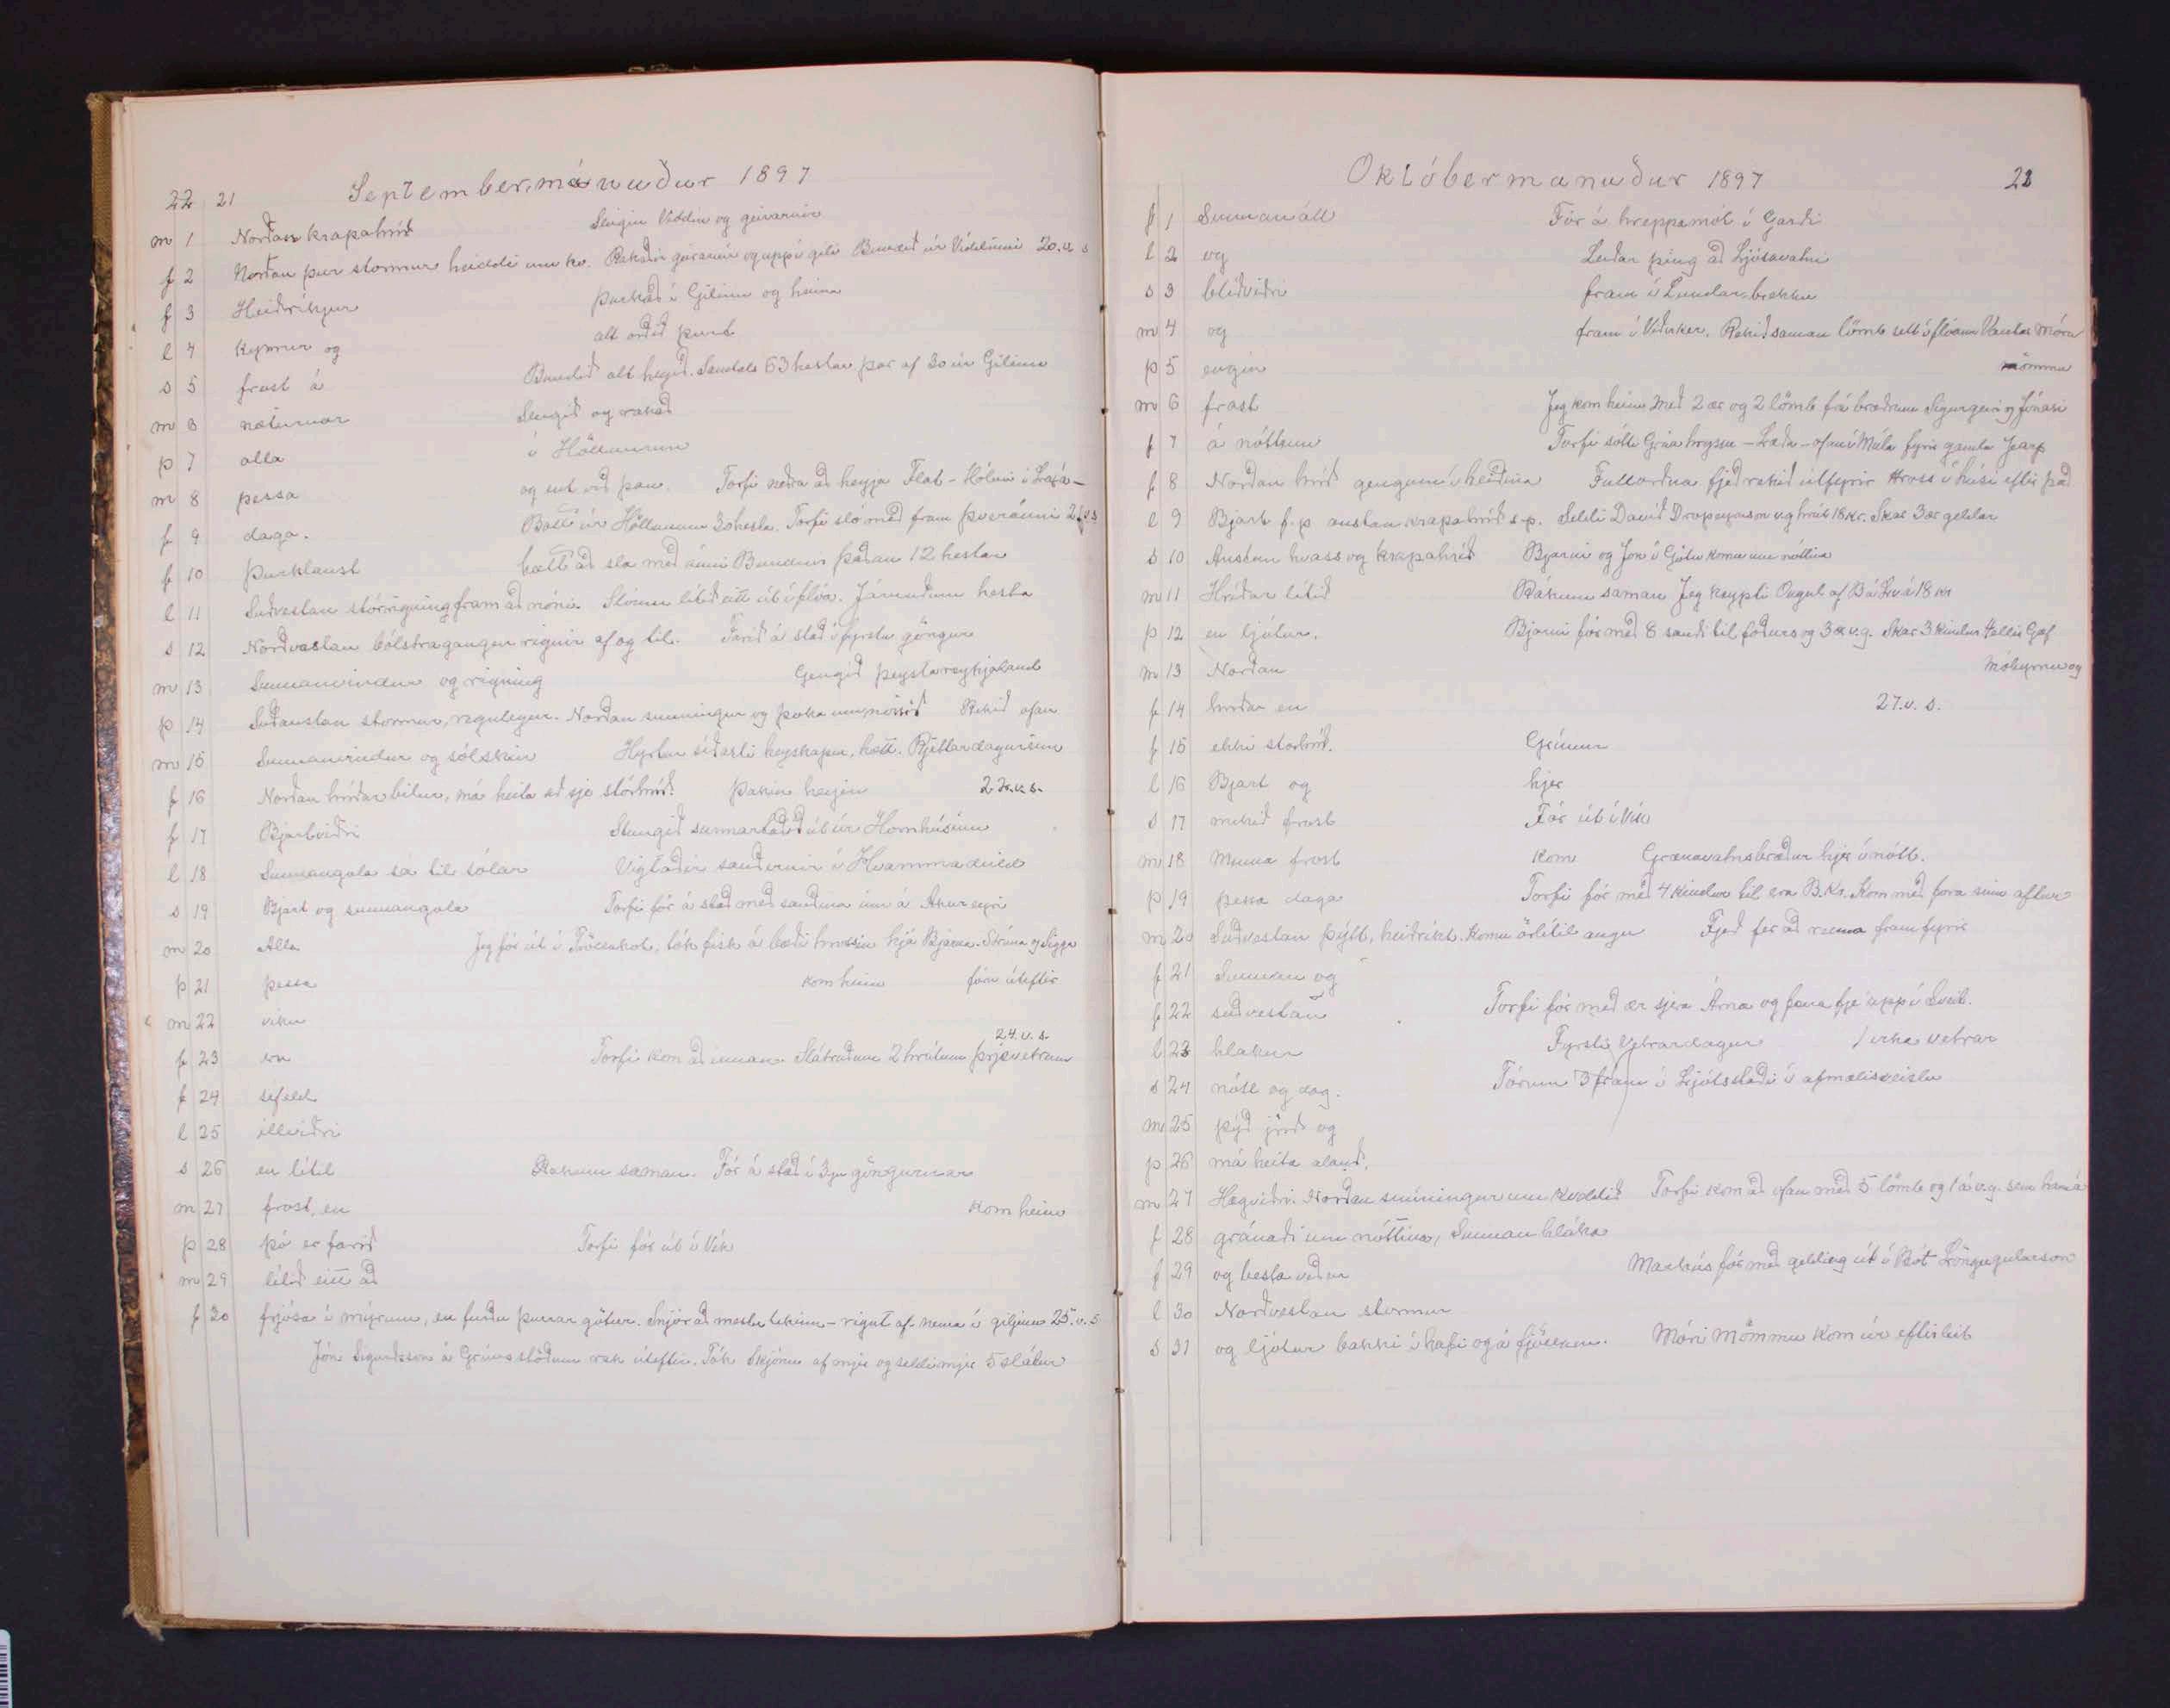 22 21 Septembermánuður 1897
m 1 Norðan krapahríð Slegin Víddin og geirarnir
f 2 Norðan þur stormur heiddi um kv. Rakaðir geirarnir og uppí gili Bundið úr Víddinni 20. v. s
f 3 Heiðríkjur Þurkað í Gilinu og heima
l 4 kyrrur og alt orðið þurt
s 5 frost á Bundið alt heyið. Samtals 63 hestar þar af 30 úr Gilinu
m 6 næturnar Slegið og rakað
þ 7 alla í Höllunum
m 8 þessa og út við þau. Torfi neðra að heyja Flat-Hólmi í Laxá-
f 9 daga. Batt úr Höllunum 30 hesta. Torfi sló með fram Þveránni 21 v s
f 10 Þurklaust hætti að slá með ánni Bundum þaðan 12 hestar
l 11 Suðvestan stórrigning fram að nóni. Slóum lítið eitt út í flóa. Járnuðum hesta
s 12 Norðvestan bólstragangur rignir af og til. Farið á stað í fyrstu göngur
m 13 Sunnanvindur og rigning Gengið Þeystareykjaland
þ 14 Suðaustan stormur, regnlegur. Norðan snúningur og þoka um Rekið ofan
m 15 Sunnanvindur og sólskin Hyrtur síðasti heyskapur, hætt. Rjettardagurinn
f 16 Norðan hríðarbilur, má heita að sje stórhríð. Þakin heyin 22. v. s.
f 17 Bjartviðri Stungið út úr Hornhúsinu
l 18 Sunnangola sá til sólar Vigtaðir sauðirnir í Hvammadeild
s 19 Bjart og sunnangola Torfi fór á stað með sauðina inn á Akureyri
m 20 Alla Jeg fór út í Tröllakot, tók fisk á bæði hrossin hjá Bjarna. Strúna og Sigga
þ 21 þessa kom heim fóru úteftir
m 22 viku
f 23 eru Torfi kom að innan. Slátruðum 2 hrútum þrjevetrum 24. v. s.
f 24 sífeld
l 25 illviðri
s 26 en lítil Rákum saman. Fór á stað í 3ju göngurnar
m 27 frost, en kom heim
þ 28 þó er farið Torfi fór út í Vík
m 29 lítið eitt að
f 30 frjósa í mýrum, en furðu þurrar götur. Snjór að mestu tekinn - rignt af - nema í giljum 25. v. s
Jón Sigurðsson á Grímsstöðum rak úteftir. Tók Skjónu af mjer og seldi mjer 5 slátur
Októbermanuður 1897 23
f 1 Sunnanátt Fór á hreppamót í Garði
l 2 og Leiðar þing að Ljósavatni
s 3 blíðviðri fram í Lundarbrekku
m 4 og fram í Víðirker. Rekið saman lömb sett í flóann Vantar Móru
þ 5 engin mömmu
m 6 frost Jeg kom heim með 2 ær og 2 lömb frá bræðrum Sigurgeiri og Jónasi
f 7 á nóttum Torfi sótti Gráa hryssu - - ofaní Múla fyrir gamla Jarp
f 8 Norðan hríð gengum í heiðina Fullorðna fjeð rekið útfyrir Hross í húsi eftir það
l 9 Bjart f. p. austan krapahríð s. p. Seldi Davíð v.g hrút 18 kr. Skar 3 ær geldar
s 10 Austan hvass og krapahríð Bjarni og Jón í Götu komu um nóttina
m 11 Hríðar lítið Rákum saman Jeg keypti Öngul af á 18 kr
þ 12 en ljótur. Bjarni fór með 8 sauði til fóðurs og 3 æ v.g. Skar 3 kindur Hallir Gæf
m 13 Norðan Móhyrnu og
f 14 hríðar en 27. v. s.
f 15 ekki stórhríð. Grímur
l 16 Bjart og hjer
s 17 mikið frost Fór út í Vík
m 18 Minna frost kom Grænavatnsbræður hjer í nótt.
þ 19 þessa daga Torfi fór með 4 kindur til B. Kr. Kom með aftur
m 20 Suðvestan þýtt, heiðríkt. Komu örlítil augu Fjeð fer að renna framfyrir
f 21 Sunnan og
f 22 suðvestan Torfi fór með ær sjera Árna og fje uppí Sveit.
l 23 hlákur Fyrsti Vetrardagur 1 vika vetrar
s 24 nótt og dag. Fórum 3 fram í Ljótsstaði í afmælisveislu
m 25 þýð jörð og
þ 26 má heita alauð.
m 27 Hægviðri. Norðan snúningur um kveldið Torfi kom að ofan með 5 lömb og 1 á v.g. sem hann á
f 28 gránaði um nóttina, Sunnan hláka
f 29 og besta veður Markús fór með gelding út í Bót
l 30 Norðvestan stormur
s 31 og ljótur bakki í hafi og á fjöllum. Móri Mömmu kom úr eftirleit